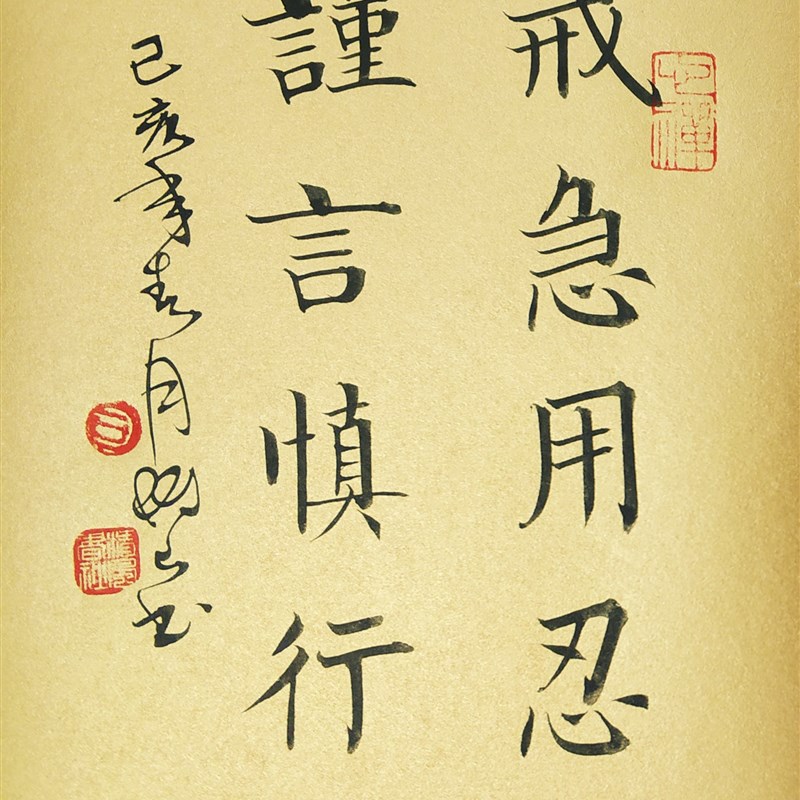 戒急用忍
謹言慎行
己亥年春月